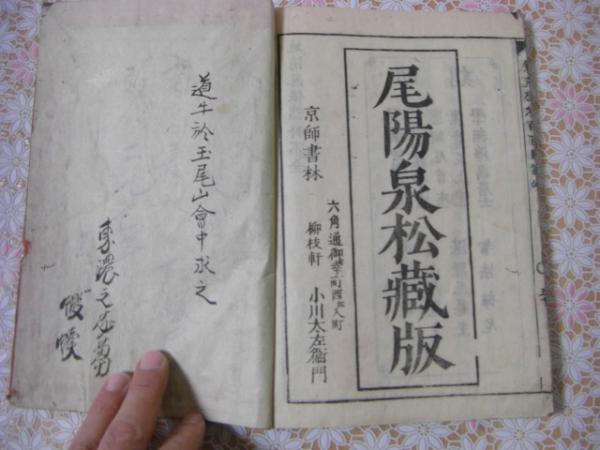 尾陽泉松藏版
京師書林
六角通御幸町西ヘ入町
柳枝軒 小川太左衞門
道牛於玉尾山會中求之
東濃之